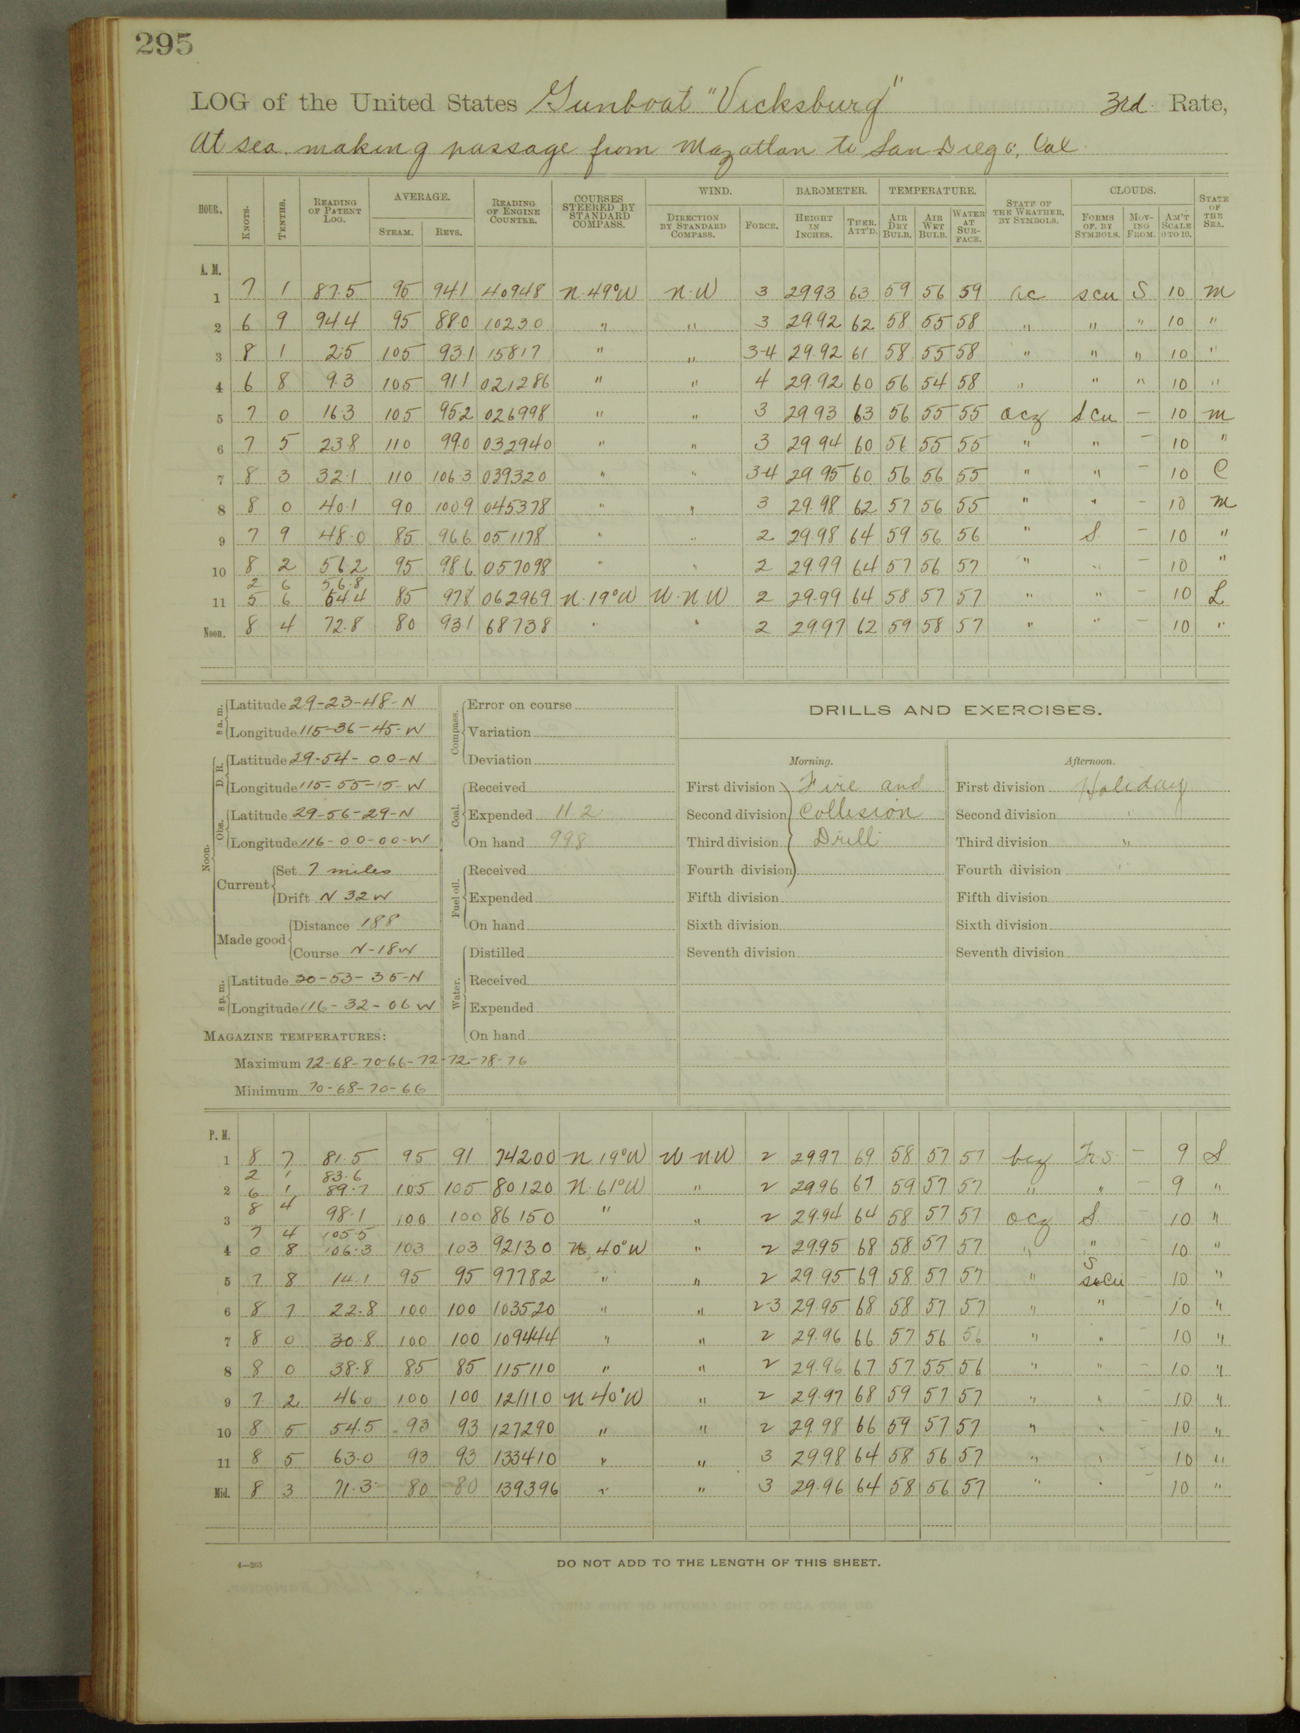 295
LOG of the United States Gunboat "Vicksburg" 3rd Rate,
At sea making passage from Mazatlan to San Diego, Cal.
HOUR. KNOTS. TENTHS. READING OF PATENT LOG. AVERAGE. STEAM. REVS. READING OF ENGINE COUNTER. COURSES STEERED BY STANDARD COMPASS. WIND. DIRECTION BY STANDARD COMPASS. FORCE. BAROMETER. HEIGHT IN INCHES. THER. ATT'D. TEMPERATURE. AIR DRY BULB. AIR WET BULB. WATER AT SURFACE. STATE OF THE WEATHER, BY SYMBOLS. CLOUDS. FORMS OF, BY SYMBOLS. MOVING FROM. AM'T SCALE 0 TO 10. STATE OF THE SEA.
A. M.
1 7 1 87.5 95 94.1 40948 N.49°W N.W 3 29.93 63 59 56 59 oc scu S 10 M
2 6 9 94.4 95 88.0 10230 " " 3 29.92 62 58 55 58 " " " 10 "
3 8 1 2.5 105 93.1 15817 " " 3-4 29.92 61 58 55 58 " " " 10 "
4 6 8 9.3 105 91.1 021286 " " 4 29.92 60 56 54 58 " " " 10 "
5 7 0 16.3 105 95.2 026998 " " 3 29.93 63 56 55 55 ocz Scu — 10 M
6 7 5 23.8 110 99.0 032940 " " 3 29.94 60 56 55 55 " " — 10 "
7 8 3 32.1 110 106.3 039320 " " 3-4 29.95 60 56 56 55 " " — 10 C
8 8 0 40.1 90 100.9 045378 " " 3 29.98 62 57 56 55 " " — 10 M
9 7 9 48.0 85 96.6 051178 " " 2 29.98 64 59 56 56 " S — 10 "
10 8 2 56.2 95 98.6 057098 " " 2 29.99 64 57 56 57 " " — 10 "
2 6 56.8
11 5 6 64.4 85 97.8 062969 N.19°W W.N.W 2 29.99 64 58 57 57 " " — 10 L
Noon. 8 4 72.8 80 93.1 68738 " " 2 29.97 62 59 58 57 " " — 10 "
8 a. m. Latitude 29-23-48-N
Longitude 115-36-45-W
Noon. D. R. Latitude 29-54-00-N
Longitude 115-55-15-W
Obs. Latitude 29-56-29-N
Longitude 116-00-00-W
Current Set 7 miles
Drift N 32 W
Made good Distance 188
Course N-18W
8 p. m. Latitude 30-53-35-N
Longitude 116-32-06 W
MAGAZINE TEMPERATURES:
Maximum 72-68-70-66-72-72-78-76
Minimum 70-68-70-66
Compass. Error on course
Variation
Deviation
Coal. Received
Expended 11 2
On hand 998
Fuel oil. Received
Expended
On hand
Water. Distilled
Received
Expended
On hand
DRILLS AND EXERCISES.
Morning.
First division Fire and
Second division Collision
Third division Drill
Fourth division
Fifth division
Sixth division
Seventh division
Afternoon.
First division Holiday
Second division "
Third division "
Fourth division "
Fifth division
Sixth division
Seventh division
P. M.
1 8 7 81.5 95 91 74200 N 19°W W NW 2 29.97 69 58 57 57 bcz Fr.S. — 9 S
2 1 83.6
2 6 1 89.7 105 105 80120 N.61°W " 2 29.96 67 59 57 57 " " — 9 "
3 8 4 98.1 100 100 86150 " " 2 29.94 64 58 57 57 ocz S 10 "
7 4 105.5
4 0 8 106.3 103 103 92130 N. 40°W " 2 29.95 68 58 57 57 " " 10 "
5 7 8 14.1 95 95 97782 " " 2 29.95 69 58 57 57 " S scu — 10 "
6 8 7 22.8 100 100 103520 " " 2-3 29.95 68 58 57 57 " " 10 "
7 8 0 30.8 100 100 109444 " " 2 29.96 66 57 56 56 " " — 10 "
8 8 0 38.8 85 85 115110 " " 2 29.96 67 57 55 56 " " — 10 "
9 7 2 46.0 100 100 121110 N 40°W " 2 29.97 68 59 57 57 " " 10 "
10 8 5 54.5 93 93 127290 " " 2 29.98 66 59 57 57 " " — 10 "
11 8 5 63.0 93 93 133410 " " 3 29.98 64 58 56 57 " " — 10 "
Mid. 8 3 71.3 80 80 139396 " " 3 29.96 64 58 56 57 " " — 10 "
4—265
DO NOT ADD TO THE LENGTH OF THIS SHEET.